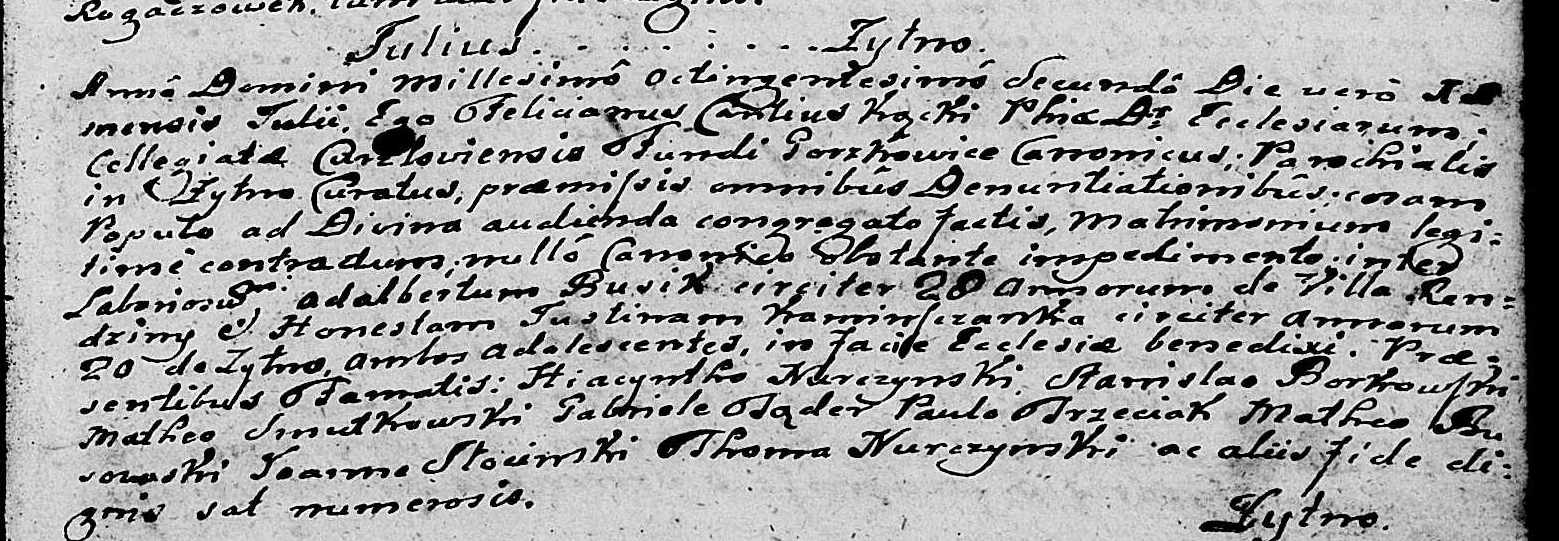 Rogaczowek.
Julius. . . . . : . . . . Zytno.
Annô Domini Millesimô Octingentesimô Secundô Die verô
mensis Julii, Ego Felicianus Cantius Kącki Phiæ Dr Ecclesiarum;
Collegiatæ Curzloviensis Fundi Gorzkowice Canonicus; Parochialis
in Zytno Curatus, præmissis omnibûs Denuntiationibûs; coram
Populo ad Divina audienda congregato factis, Matrimonium legi:
timè contractum, nullô Canonico obstante impedimento inter
Laboriosum Adalbertum Busik circiter 28 Annorum de Villa Ren:
dziny & Honestam Justinam Kaminszanka circiter annorum
20 de Zytno, ambos adolescentes, in facie Ecclesiæ benedixi. Præ:
sentibus Famatis: Hiacyntho Nurczynski, Stanislao Borkowski
Matheo Smutkowski Gabriele Fąder Paulo Trzeciak Matheo Bu
sowski Joanne Słocinski Thoma Nurczynski ac aliis fide di:
gnis sat numerosis.
Zytno.